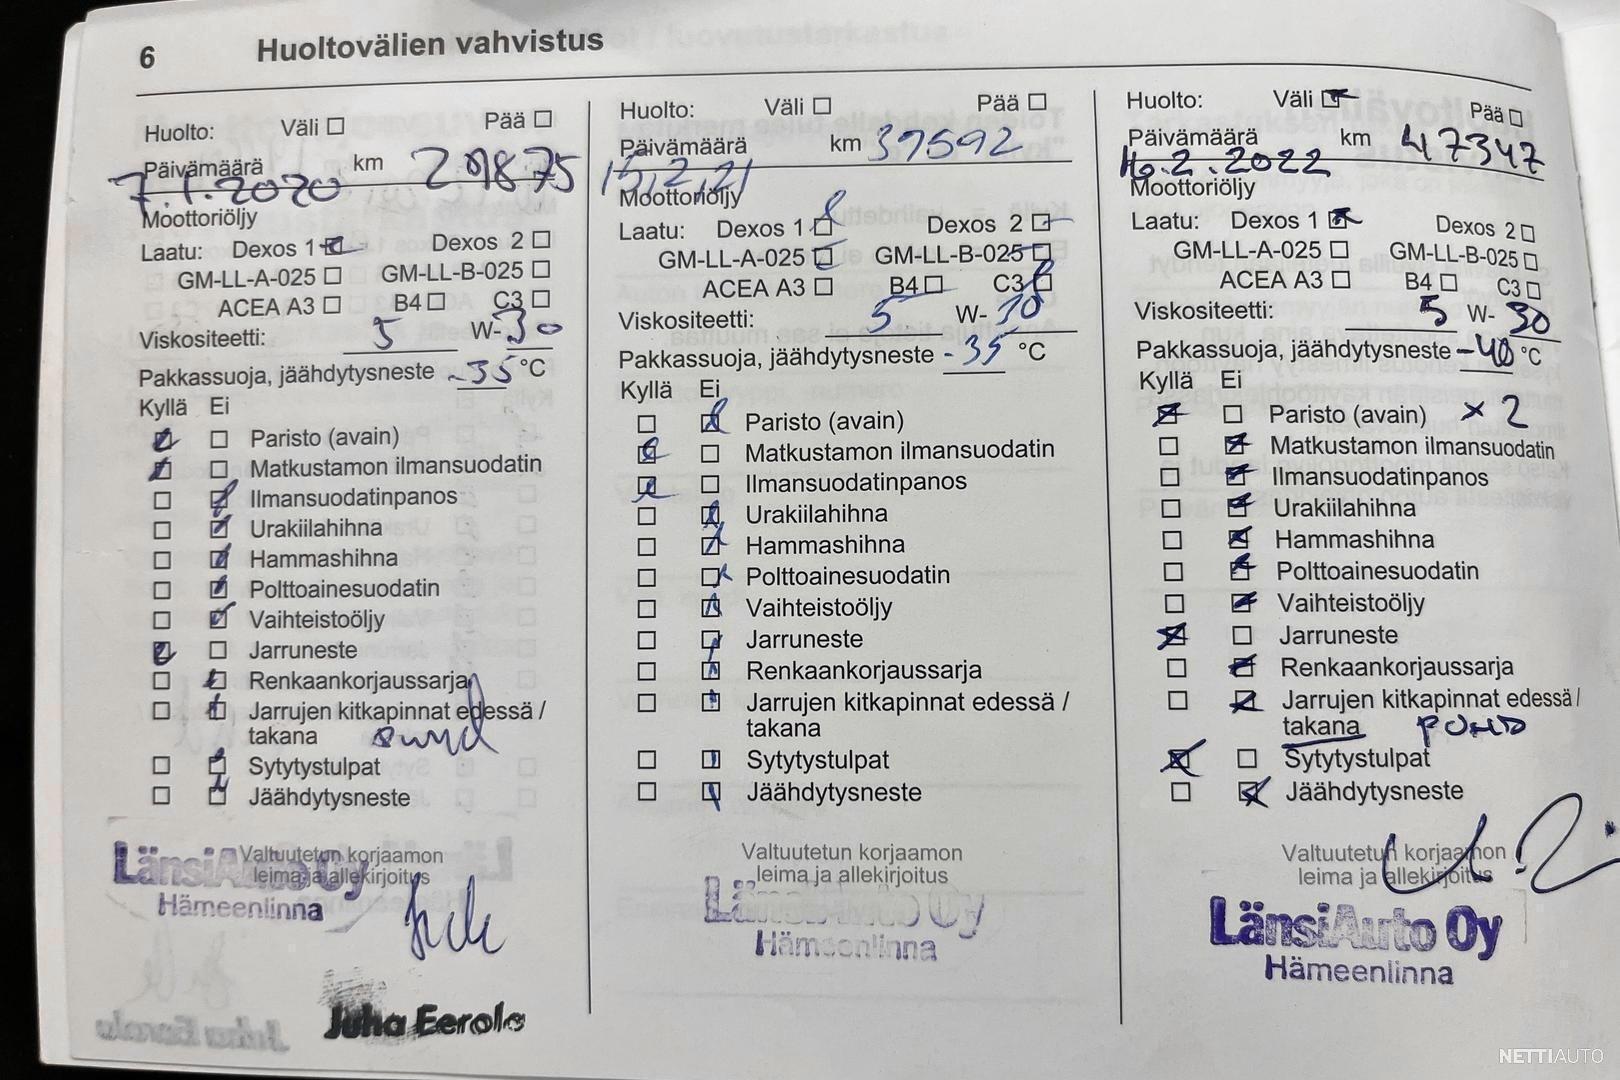 6 Huoltovälien vahvistus
Huolto: Väli Pää
Päivämäärä km
7.1.2020 29875
Moottoriöljy
Laatu: Dexos 1 Dexos 2
GM-LL-A-025 GM-LL-B-025
ACEA A3 B4 C3
Viskositeetti: 5 W-30
Pakkassuoja, jäähdytysneste -35 °C
Kyllä Ei
Paristo (avain)
Matkustamon ilmansuodatin
Ilmansuodatinpanos
Urakiilahihna
Hammashihna
Polttoainesuodatin
Vaihteistoöljy
Jarruneste
Renkaankorjaussarja
Jarrujen kitkapinnat edessä /
takana
Sytytystulpat
Jäähdytysneste
Valtuutetun korjaamon
leima ja allekirjoitus
LänsiAuto Oy
Hämeenlinna
Juha Eerola
Huolto: Väli Pää
Päivämäärä km 37592
15.2.21
Moottoriöljy
Laatu: Dexos 1 Dexos 2
GM-LL-A-025 GM-LL-B-025
ACEA A3 B4 C3
Viskositeetti: 5 W-30
Pakkassuoja, jäähdytysneste -35 °C
Kyllä Ei
Paristo (avain)
Matkustamon ilmansuodatin
Ilmansuodatinpanos
Urakiilahihna
Hammashihna
Polttoainesuodatin
Vaihteistoöljy
Jarruneste
Renkaankorjaussarja
Jarrujen kitkapinnat edessä /
takana
Sytytystulpat
Jäähdytysneste
Valtuutetun korjaamon
leima ja allekirjoitus
LänsiAuto Oy
Hämeenlinna
Huolto: Väli Pää
Päivämäärä km 47347
16.2.2022
Moottoriöljy
Laatu: Dexos 1 Dexos 2
GM-LL-A-025 GM-LL-B-025
ACEA A3 B4 C3
Viskositeetti: 5 W-30
Pakkassuoja, jäähdytysneste -40 °C
Kyllä Ei
Paristo (avain) x 2
Matkustamon ilmansuodatin
Ilmansuodatinpanos
Urakiilahihna
Hammashihna
Polttoainesuodatin
Vaihteistoöljy
Jarruneste
Renkaankorjaussarja
Jarrujen kitkapinnat edessä /
takana
Sytytystulpat
Jäähdytysneste
Valtuutetun korjaamon
leima ja allekirjoitus
LänsiAuto Oy
Hämeenlinna
NETTIAUTO